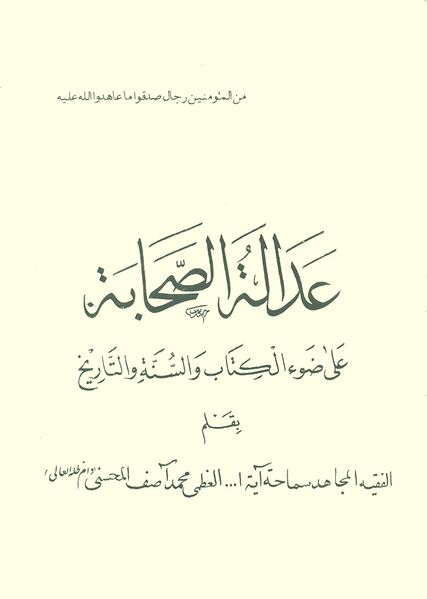 من المؤمنين رجال صدقوا ما عاهدوا الله عليه
عَدَالَةُ الصَّحَابَة
عَلىٰ ضَوءِ الْكِتَابِ وَالسُّنَّةِ وَالتَّارِيْخ
بِقَلَم
الفقيه المجاهد سماحة آية ا... العظمى محمد آصف المحسني (دام ظله العالى)